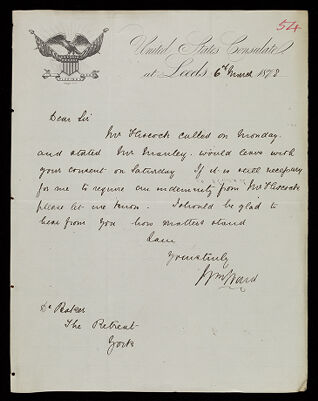 54
United States Consulate
at Leeds 6th March 1878
Dear Sir
Mr Hiscock called on Monday
and stated Mr Manley would leave with
your consent on Saturday If it is still necessary
for me to require an indemnity from Mr Hiscock
please let me know. I should be glad to
hear from you how matters stand
I am
Yours truly
Wm Ward
Dr Baker
The Retreat
York